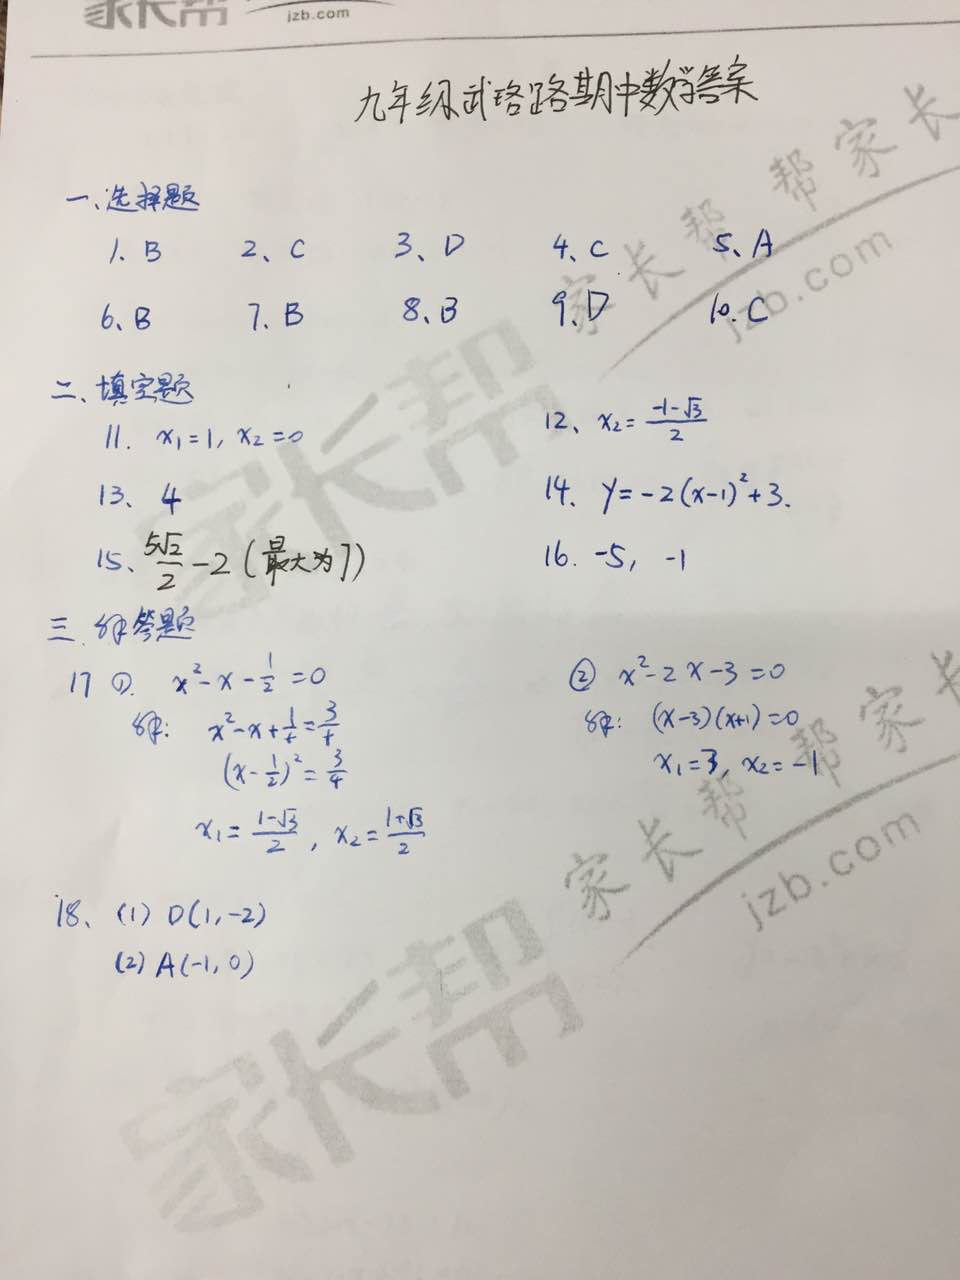 家长帮
jzb.com
九年级武珞路期中数学答案
一、选择题
1. B 2、C 3、D 4、C 5、A
6、B 7、B 8、B 9、D 10. C
二、填空题
11. x₁=1, x₂=0 12、x₂=(-1-√3)/2
13、4 14、y=-2(x-1)²+3.
15、5√2/2-2(最大为7) 16. -5, -1
三、解答题
17 ①. x²-x-1/2=0 ② x²-2x-3=0
解: x²-x+1/4=3/4 解: (x-3)(x+1)=0
(x-1/2)²=3/4 x₁=3, x₂=-1
x₁=(1-√3)/2, x₂=(1+√3)/2
18、(1) D(1,-2)
(2) A(-1,0)
家长帮
家长帮
jzb.com
家长帮
家长帮
jzb.com